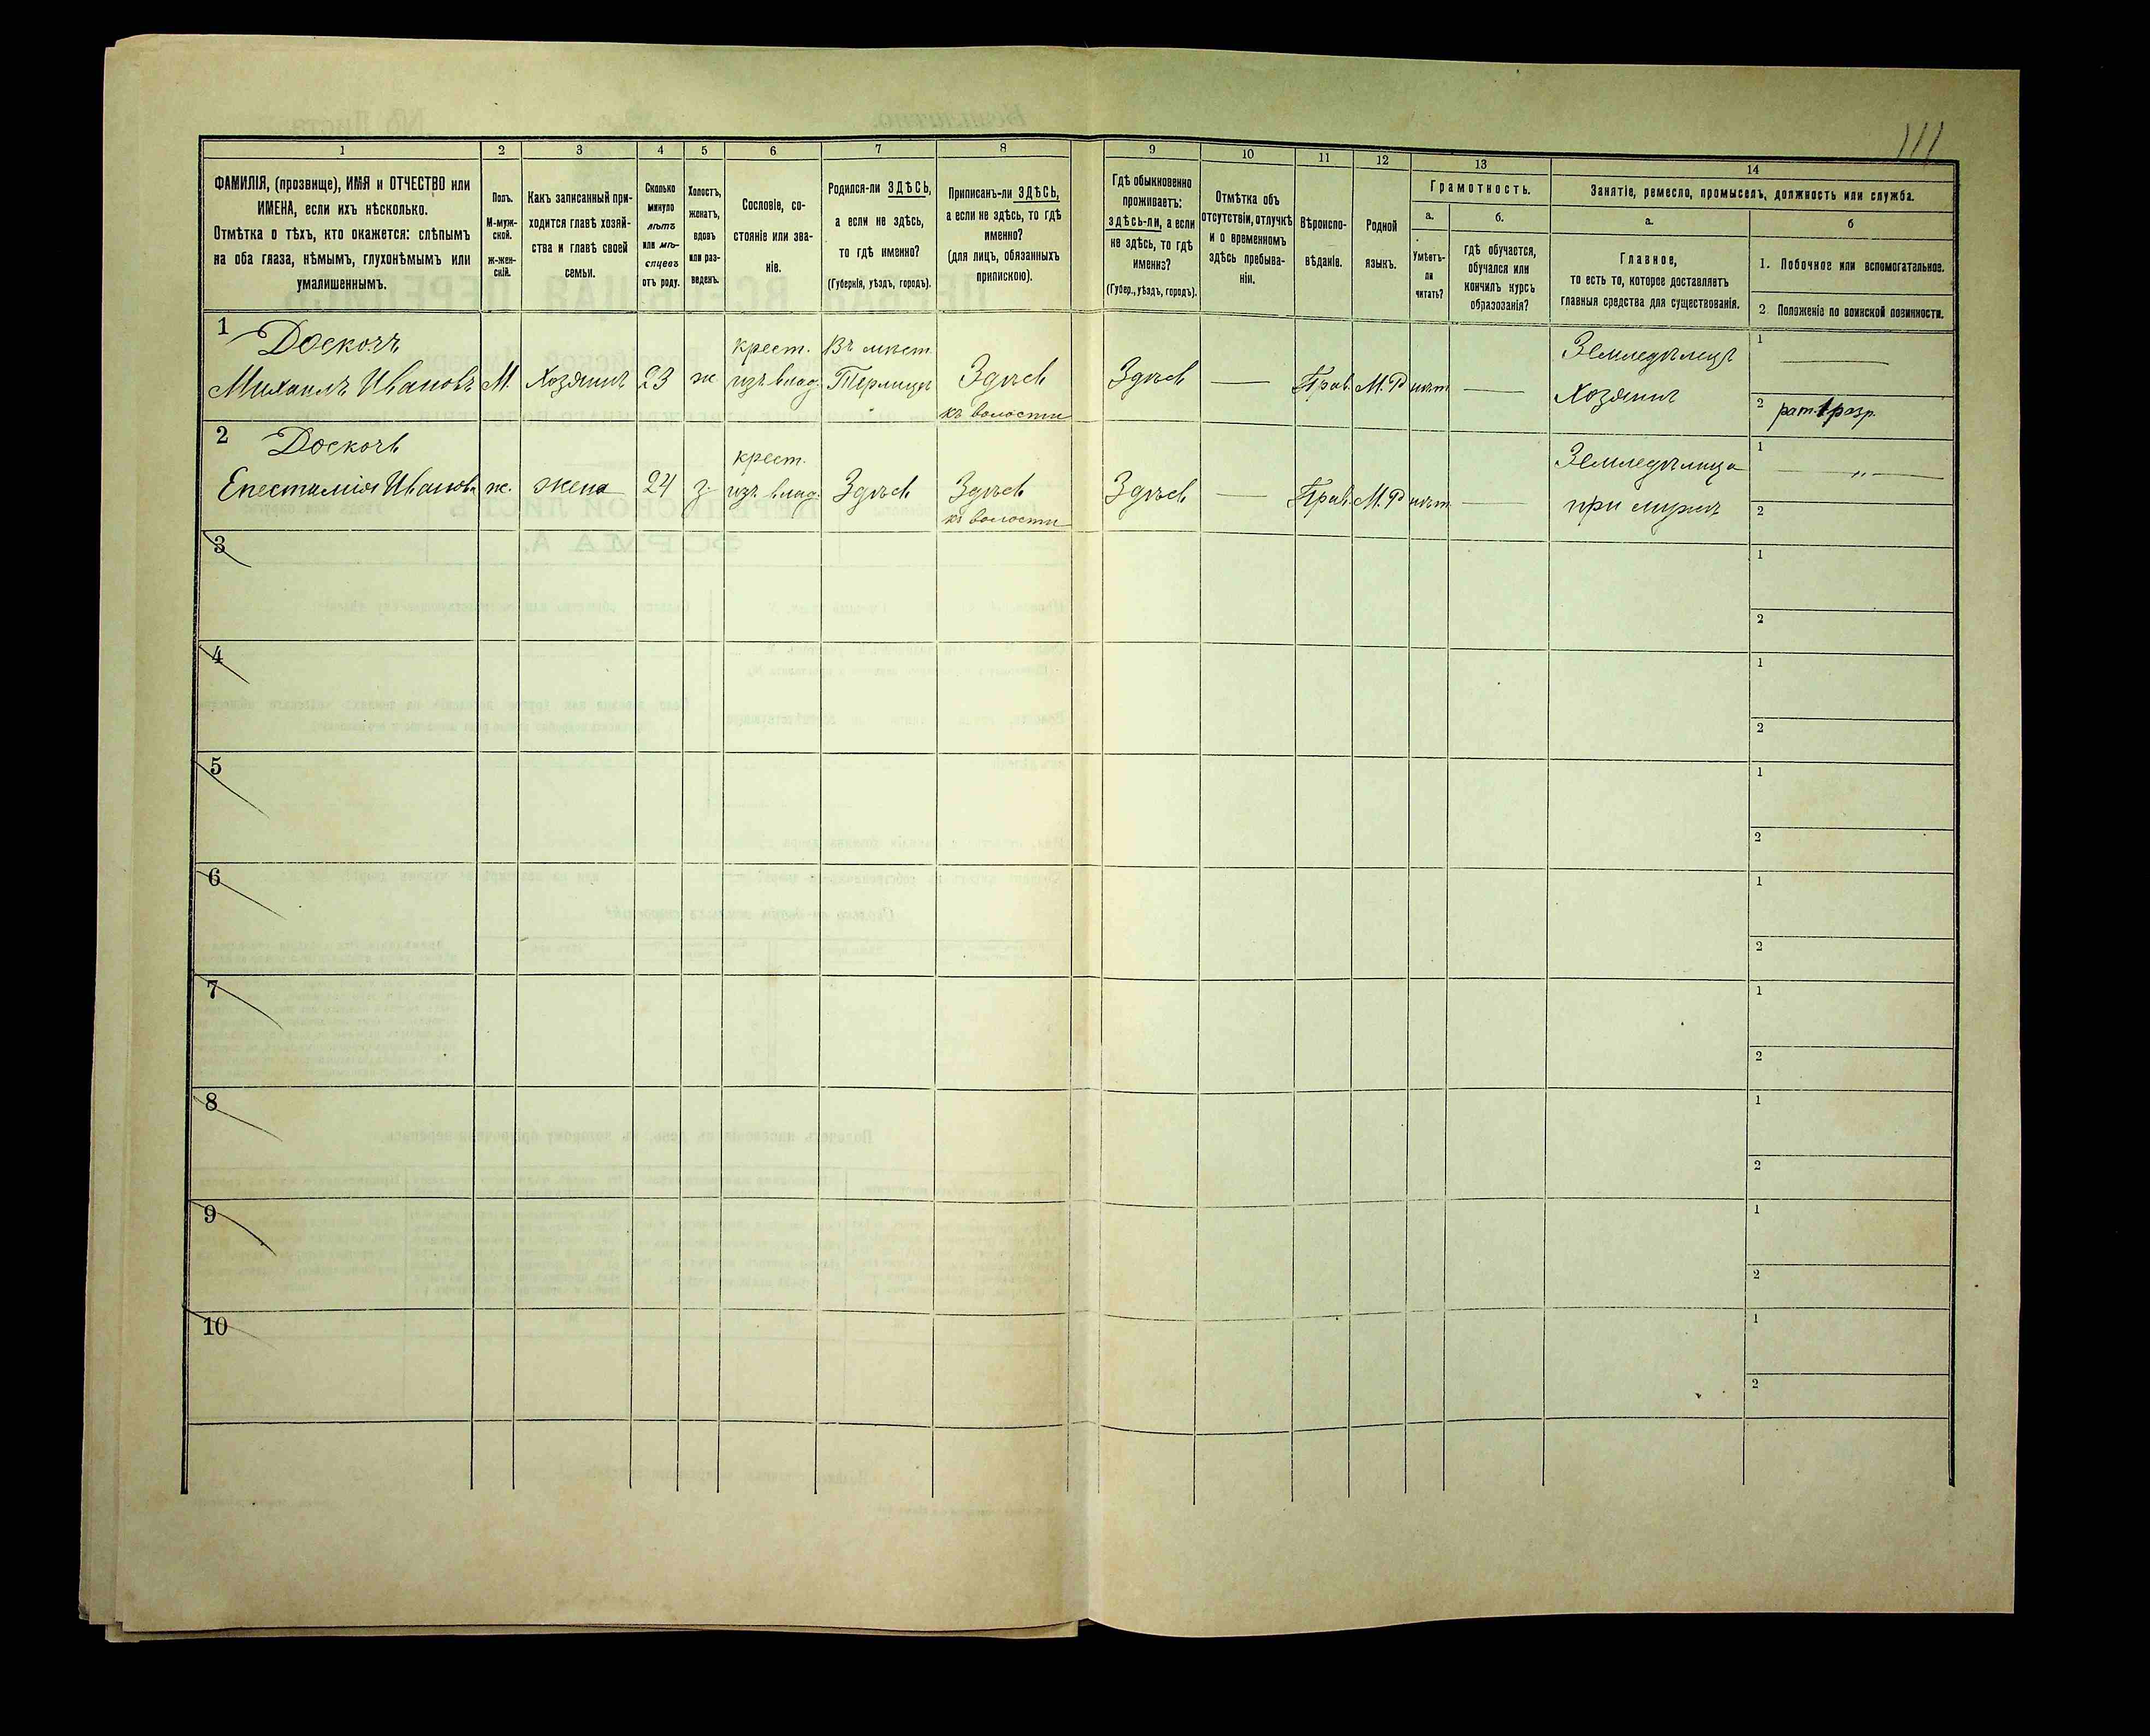 111
1 2 3 4 5 6 7 8 9 10 11 12 13 14
ФАМИЛІЯ, (прозвище), ИМЯ и ОТЧЕСТВО или
ИМЕНА, если ихъ нѣсколько.
Отмѣтка о тѣхъ, кто окажется: слѣпымъ
на оба глаза, нѣмымъ, глухонѣмымъ или
умалишеннымъ.
Полъ.
М-муж-
ской.
ж-жен-
скій.
Какъ записанный при-
ходится главѣ хозяй-
ства и главѣ своей
семьи.
Сколько
минуло
лѣтъ
или мѣ-
сяцевъ
отъ роду.
Холостъ,
женатъ,
вдовъ
или раз-
веденъ.
Сословіе, со-
стояніе или зва-
ніе.
Родился-ли ЗДѢСЬ,
а если не здѣсь,
то гдѣ именно?
(Губернія, уѣздъ, городъ).
Приписанъ-ли ЗДѢСЬ,
а если не здѣсь, то гдѣ
именно?
(для лицъ, обязанныхъ
припискою).
Гдѣ обыкновенно
проживаетъ:
здѣсь-ли, а если
не здѣсь, то гдѣ
именно?
(Губер., уѣздъ, городъ).
Отмѣтка объ
отсутствіи, отлучкѣ
и о временномъ
здѣсь пребыва-
ніи.
Вѣроиспо-
вѣданіе.
Родной
языкъ.
Грамотность.
а.
Умѣетъ-
ли
читать?
б.
Гдѣ обучается,
обучался или
кончилъ курсъ
образованія?
Занятіе, ремесло, промыселъ, должность или служба.
а.
Главное,
то есть то, которое доставляетъ
главныя средства для существованія.
б
1. Побочное или вспомогательное.
2. Положеніе по воинской повинности.
1 Доскочъ
Михаилъ Ивановъ
М.
Хозяинъ
23
ж
крест.
изъ влад.
Въ мѣст.
Терлица
Здѣсь
къ волости
Здѣсь
—
Прав.
М. Р
нѣтъ
—
Земледѣлецъ
Хозяинъ
1 —
2 рат. 1 разр.
2 Доскочъ
Епестимія Иванова
ж.
жена
24
з.
крест.
изъ влад.
Здѣсь
Здѣсь
къ волости
Здѣсь
—
Прав.
М. Р
нѣтъ
—
Земледѣлица
при мужѣ
1 — „ —
2
3
1
2
4
1
2
5
1
2
6
1
2
7
1
2
8
1
2
9
1
2
10
1
2